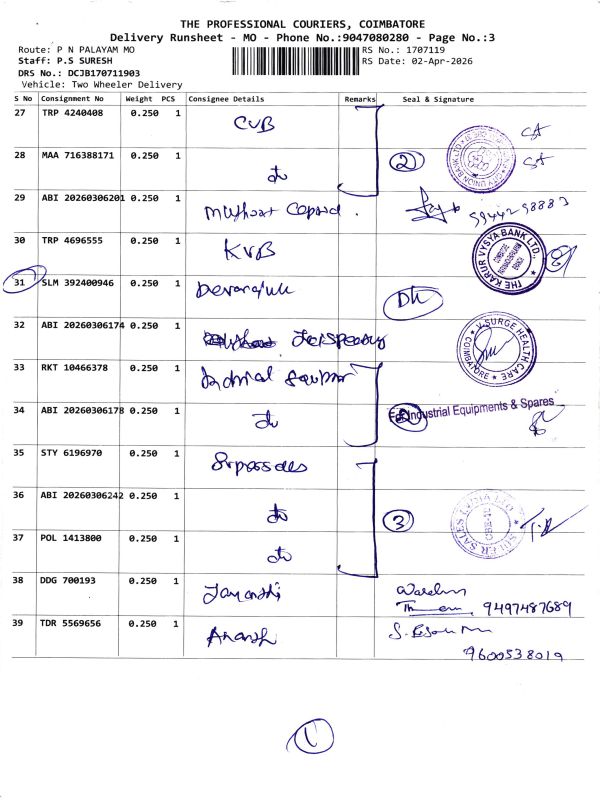 THE PROFESSIONAL COURIERS, COIMBATORE
Delivery Runsheet - MO - Phone No.:9047080280 - Page No.:3
Route: P N PALAYAM MO
RS No.: 1707119
Staff: P.S SURESH
RS Date: 02-Apr-2026
DRS No.: DCJB170711903
Vehicle: Two Wheeler Delivery
S No Consignment No Weight PCS Consignee Details Remarks Seal & Signature
27 TRP 4240408 0.250 1 CUB
28 MAA 716388171 0.250 1 do 2
29 ABI 20260306201 0.250 1 Muthoot 9944298883
30 TRP 4696555 0.250 1 KVB
THE KARUR VYSYA BANK LTD.,
31 SLM 392400946 0.250 1 Devarajulu
32 ABI 20260306174 0.250 1
V-SURGE HEALTH CARE
COIMBATORE
33 RKT 10466378 0.250 1
34 ABI 20260306178 0.250 1 do
For Industrial Equipments & Spares
35 STY 6196970 0.250 1
36 ABI 20260306242 0.250 1 do 3
37 POL 1413800 0.250 1 do
38 DDG 700193 0.250 1 9497487689
39 TDR 5569656 0.250 1
9600538019
1